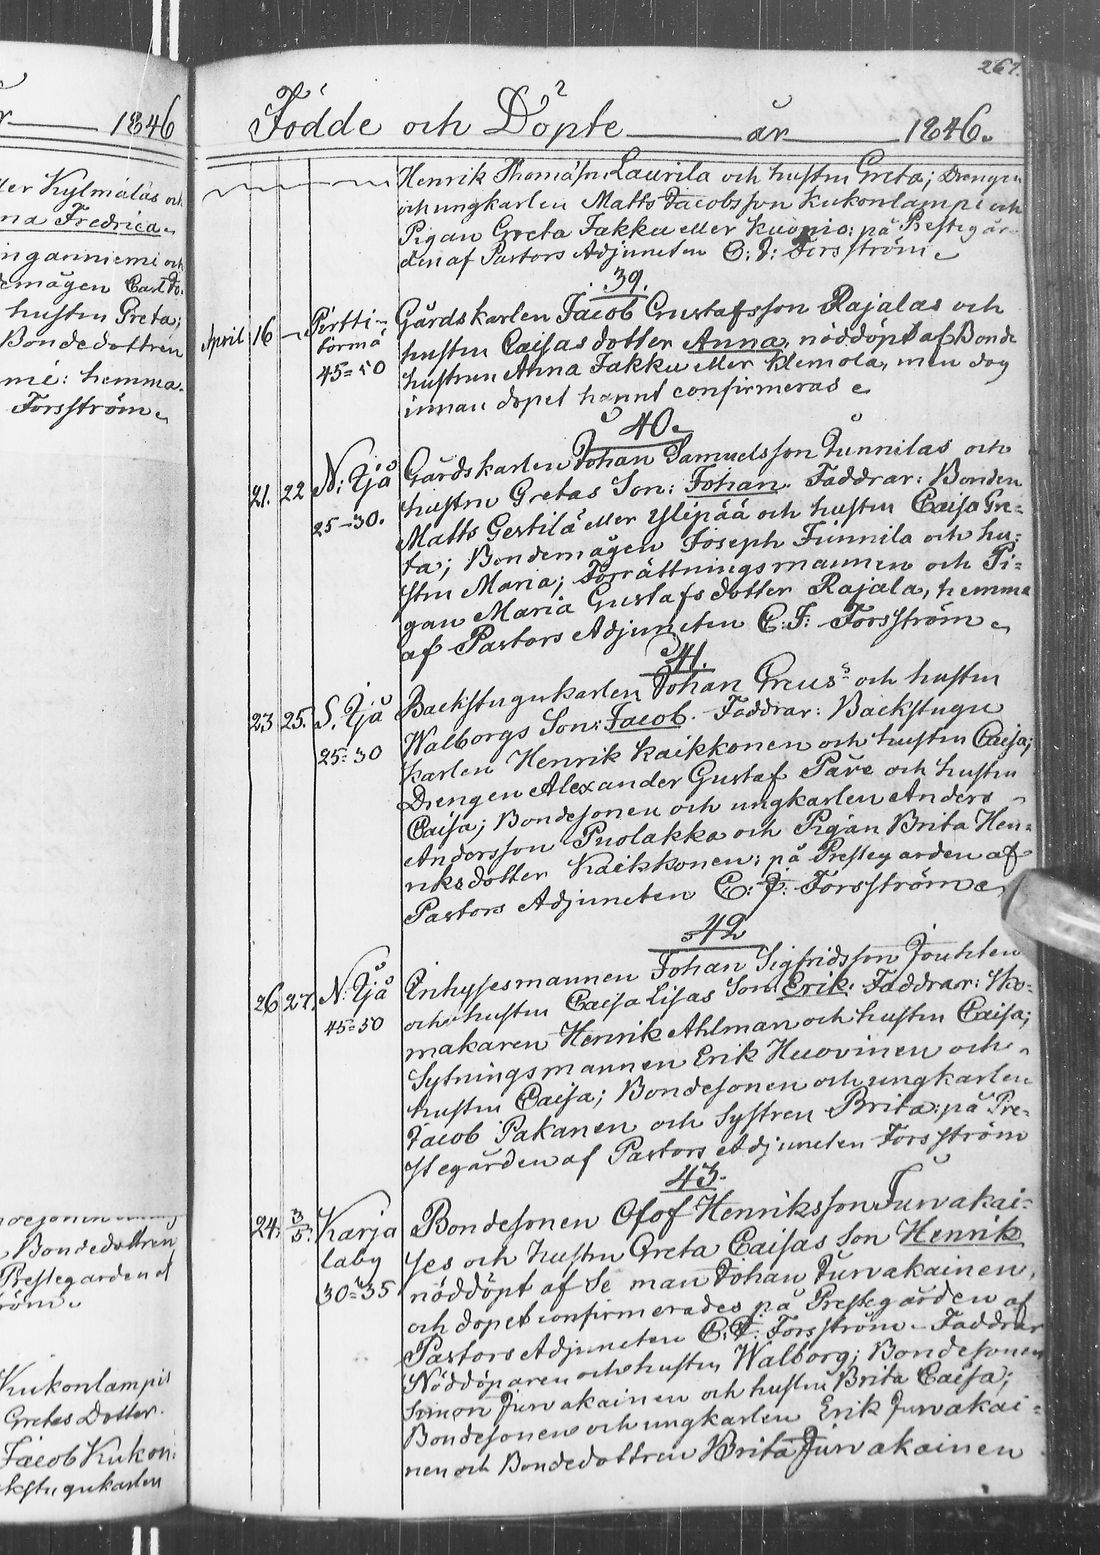 r 1846
ller Kylmälas och
na Fredrica
nganniemi och
demågen Carl Jo:
hustru Greta;
Bondedottren
mi: hemma
Forsström
Bondedottren
Prestegården af
röm
Kukonlampis
Gretas Dotter.
Jacob Kukon:
kstugukarlen
267.
Födde och Döpte år 1846.
Henrik Thomaſn Laurila och huſtru Greta; Drengen
och ungkarlen Matts Jacobsſon Kukonlampi och
Pigan Greta Jakku eller Kuonio: på Preſtegår-
den af Pastors Adjuncten C: J: Forsſtröm
39.
April 16 Pirtti- Gårdskarlen Jacob Gustafsſon Rajalas och
törmä huſtru Caiſas dotter Anna, nöddöpt af Bonde
45=50 huſtrun Anna Jakku eller Klemola, men dog
innan dopet hannt confirmeras
40.
21. 22 N: Ijå Gårdskarlen Johan Samuelsſon Junnilas och
25-30. huſtru Gretas Son: Johan. Faddrar: Bonden
Matts Gestilä eller Ylipää och huſtru Caiſa Gre=
ta; Bondemågen Joseph Junnila och hu=
ſtru Maria; Förrättningsmannen och Pi=
gan Maria Gustafsdotter Rajala, hemma
af Pastors Adjuncten C: J: Forsſtröm
41.
23 25. S. Ijå Backſtugukarlen Johan Greus och huſtru
25=30 Walborgs Son: Jacob. Faddrar: Backſtugu
karlen Henrik Kaikkonen och huſtru Caiſa;
Drengen Alexander Gustaf Pare och huſtru
Caiſa; Bondeſonen och ungkarlen Anders
Andersſon Puolakka och Pigan Brita Hen=
riksdotter Kaikkonen: på Preſtegården af
Pastors Adjuncten C: J: Forsſtröm
42
26 27. N: Ijå Inhyſesmannen Johan Sigfridsſon Jouhten
45=50 och huſtru Caiſa Liſas Son Erik. Faddrar: Sko=
makaren Henrik Ahlman och huſtru Caiſa;
Sytningsmannen Erik Huovinen och
huſtru Caiſa; Bondeſonen och ungkarlen
Jacob Pakanen och Syſtren Brita: på Pre-
ſtegården af Pastors Adjuncten Forsſtröm
43.
24. 3/5. Karja Bondeſonen Olof Henriksſon Jurvakai=
laby ſes och huſtru Greta Caiſas Son Henrik
30=35 nöddöpt af Se man Johan Jurvakainen,
och dopet confirmerades på Preſtegården af
Pastors Adjuncten C: J: Forsſtröm. Faddrar
Nöddöparen och huſtru Walborg; Bondeſonen
Simon Jurvakainen och huſtru Brita Caiſa;
Bondeſonen och ungkarlen Erik Jurvakai=
nen och Bondedottren Brita Jurvakainen